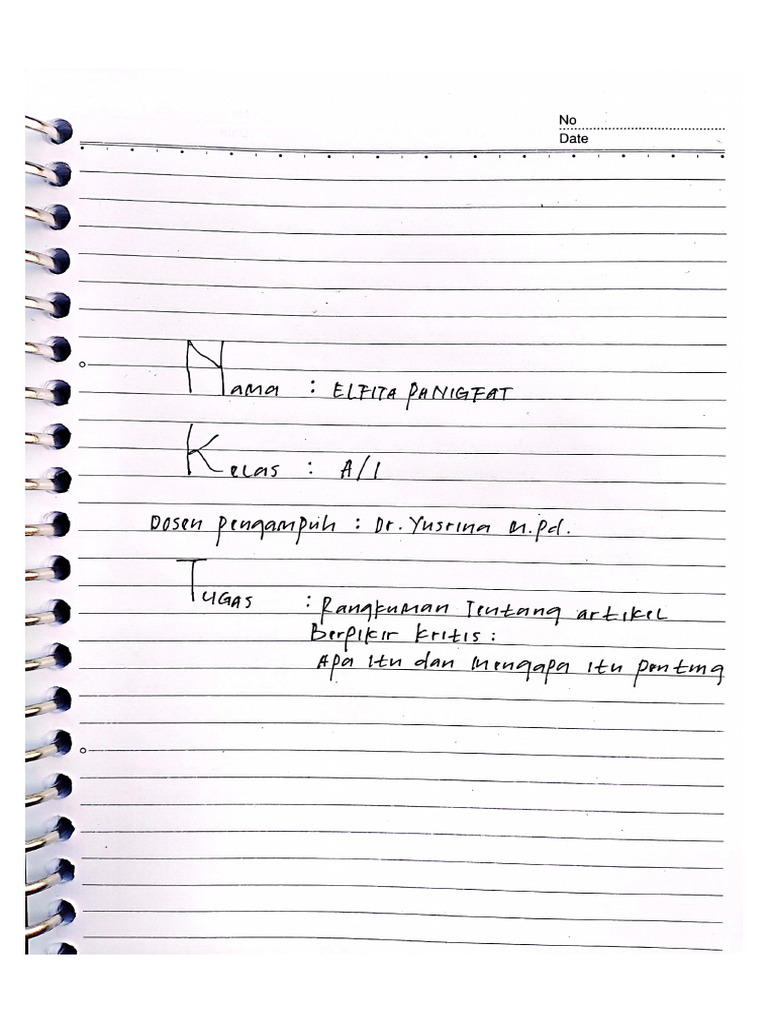 No
Date
Nama : ELFITA PANIGFAT
Kelas : A/1
Dosen pengampuh : Dr. Yusrina M.pd.
TUGAS : Rangkuman Tentang artikel
Berpikir kritis :
Apa itu dan Mengapa itu penting